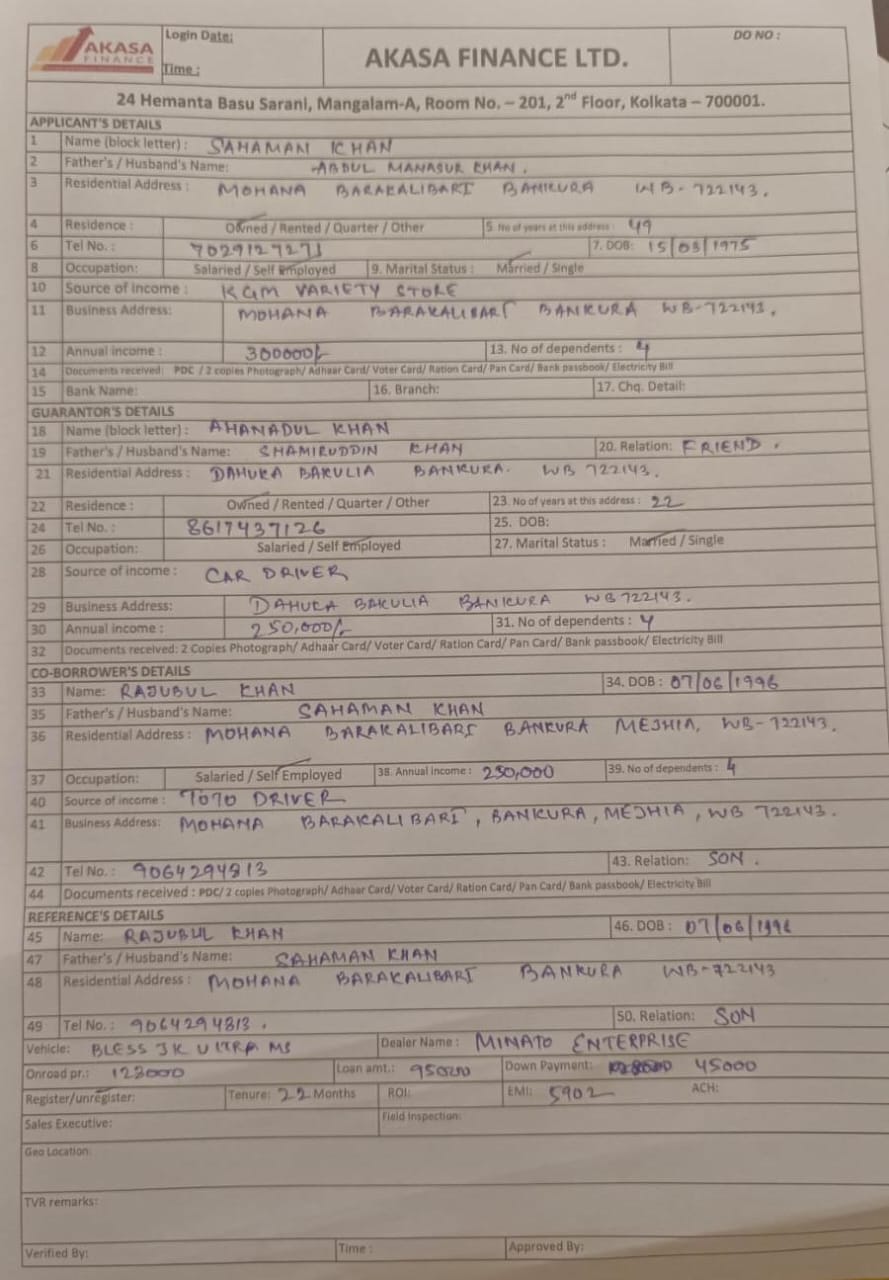 AKASA FINANCE
Login Date:
Time :
AKASA FINANCE LTD.
DO NO :
24 Hemanta Basu Sarani, Mangalam-A, Room No. – 201, 2nd Floor, Kolkata – 700001.
APPLICANT'S DETAILS
1 Name (block letter) : SAHAMAN KHAN
2 Father's / Husband's Name: ABDUL MANASUR KHAN.
3 Residential Address : MOHANA BARAKALIBARI BANKURA WB-722143.
4 Residence : Owned / Rented / Quarter / Other 5. No of years at this address : 49
6 Tel No. : 7029127271 7. DOB: 15/03/1975
8 Occupation: Salaried / Self Employed 9. Marital Status : Married / Single
10 Source of income : KGM VARIETY STORE
11 Business Address: MOHANA BARAKALIBARI BANKURA WB-722143.
12 Annual income : 300000/- 13. No of dependents : 4
14 Documents received: PDC / 2 copies Photograph/ Adhaar Card/ Voter Card/ Ration Card/ Pan Card/ Bank passbook/ Electricity Bill
15 Bank Name: 16. Branch: 17. Chq. Detail:
GUARANTOR'S DETAILS
18 Name (block letter) : AHANADUL KHAN
19 Father's / Husband's Name: SHAMIRUDDIN KHAN 20. Relation: FRIEND.
21 Residential Address : DAHUKA BAKULIA BANKURA. WB 722143.
22 Residence : Owned / Rented / Quarter / Other 23. No of years at this address : 22
24 Tel No. : 8617437126 25. DOB:
26 Occupation: Salaried / Self Employed 27. Marital Status : Married / Single
28 Source of income : CAR DRIVER
29 Business Address: DAHUKA BAKULIA BANKURA WB 722143.
30 Annual income : 250,000/- 31. No of dependents : 4
32 Documents received: 2 Copies Photograph/ Adhaar Card/ Voter Card/ Ration Card/ Pan Card/ Bank passbook/ Electricity Bill
CO-BORROWER'S DETAILS
33 Name: RAJUBUL KHAN 34. DOB : 07/06/1996
35 Father's / Husband's Name: SAHAMAN KHAN
36 Residential Address : MOHANA BARAKALIBARI BANKURA MEJHIA, WB-722143.
37 Occupation: Salaried / Self Employed 38. Annual income : 250,000 39. No of dependents : 4
40 Source of income : TOTO DRIVER
41 Business Address: MOHANA BARAKALIBARI, BANKURA, MEJHIA, WB 722143.
42 Tel No. : 9064294813 43. Relation: SON.
44 Documents received : PDC/ 2 copies Photograph/ Adhaar Card/ Voter Card/ Ration Card/ Pan Card/ Bank passbook/ Electricity Bill
REFERENCE'S DETAILS
45 Name: RAJUBUL KHAN 46. DOB : 07/06/1996
47 Father's / Husband's Name: SAHAMAN KHAN
48 Residential Address : MOHANA BARAKALIBARI BANKURA WB-722143
49 Tel No. : 9064294813. 50. Relation: SON
Vehicle: BLESS JK ULTRA MS Dealer Name : MINATO ENTERPRISE
Onroad pr.: 123000 Loan amt.: Down Payment: 45000
Register/unregister: Tenure: 22 Months ROI: EMI: 5902 ACH:
Sales Executive: Field Inspection:
Geo Location:
TVR remarks:
Verified By: Time : Approved By: